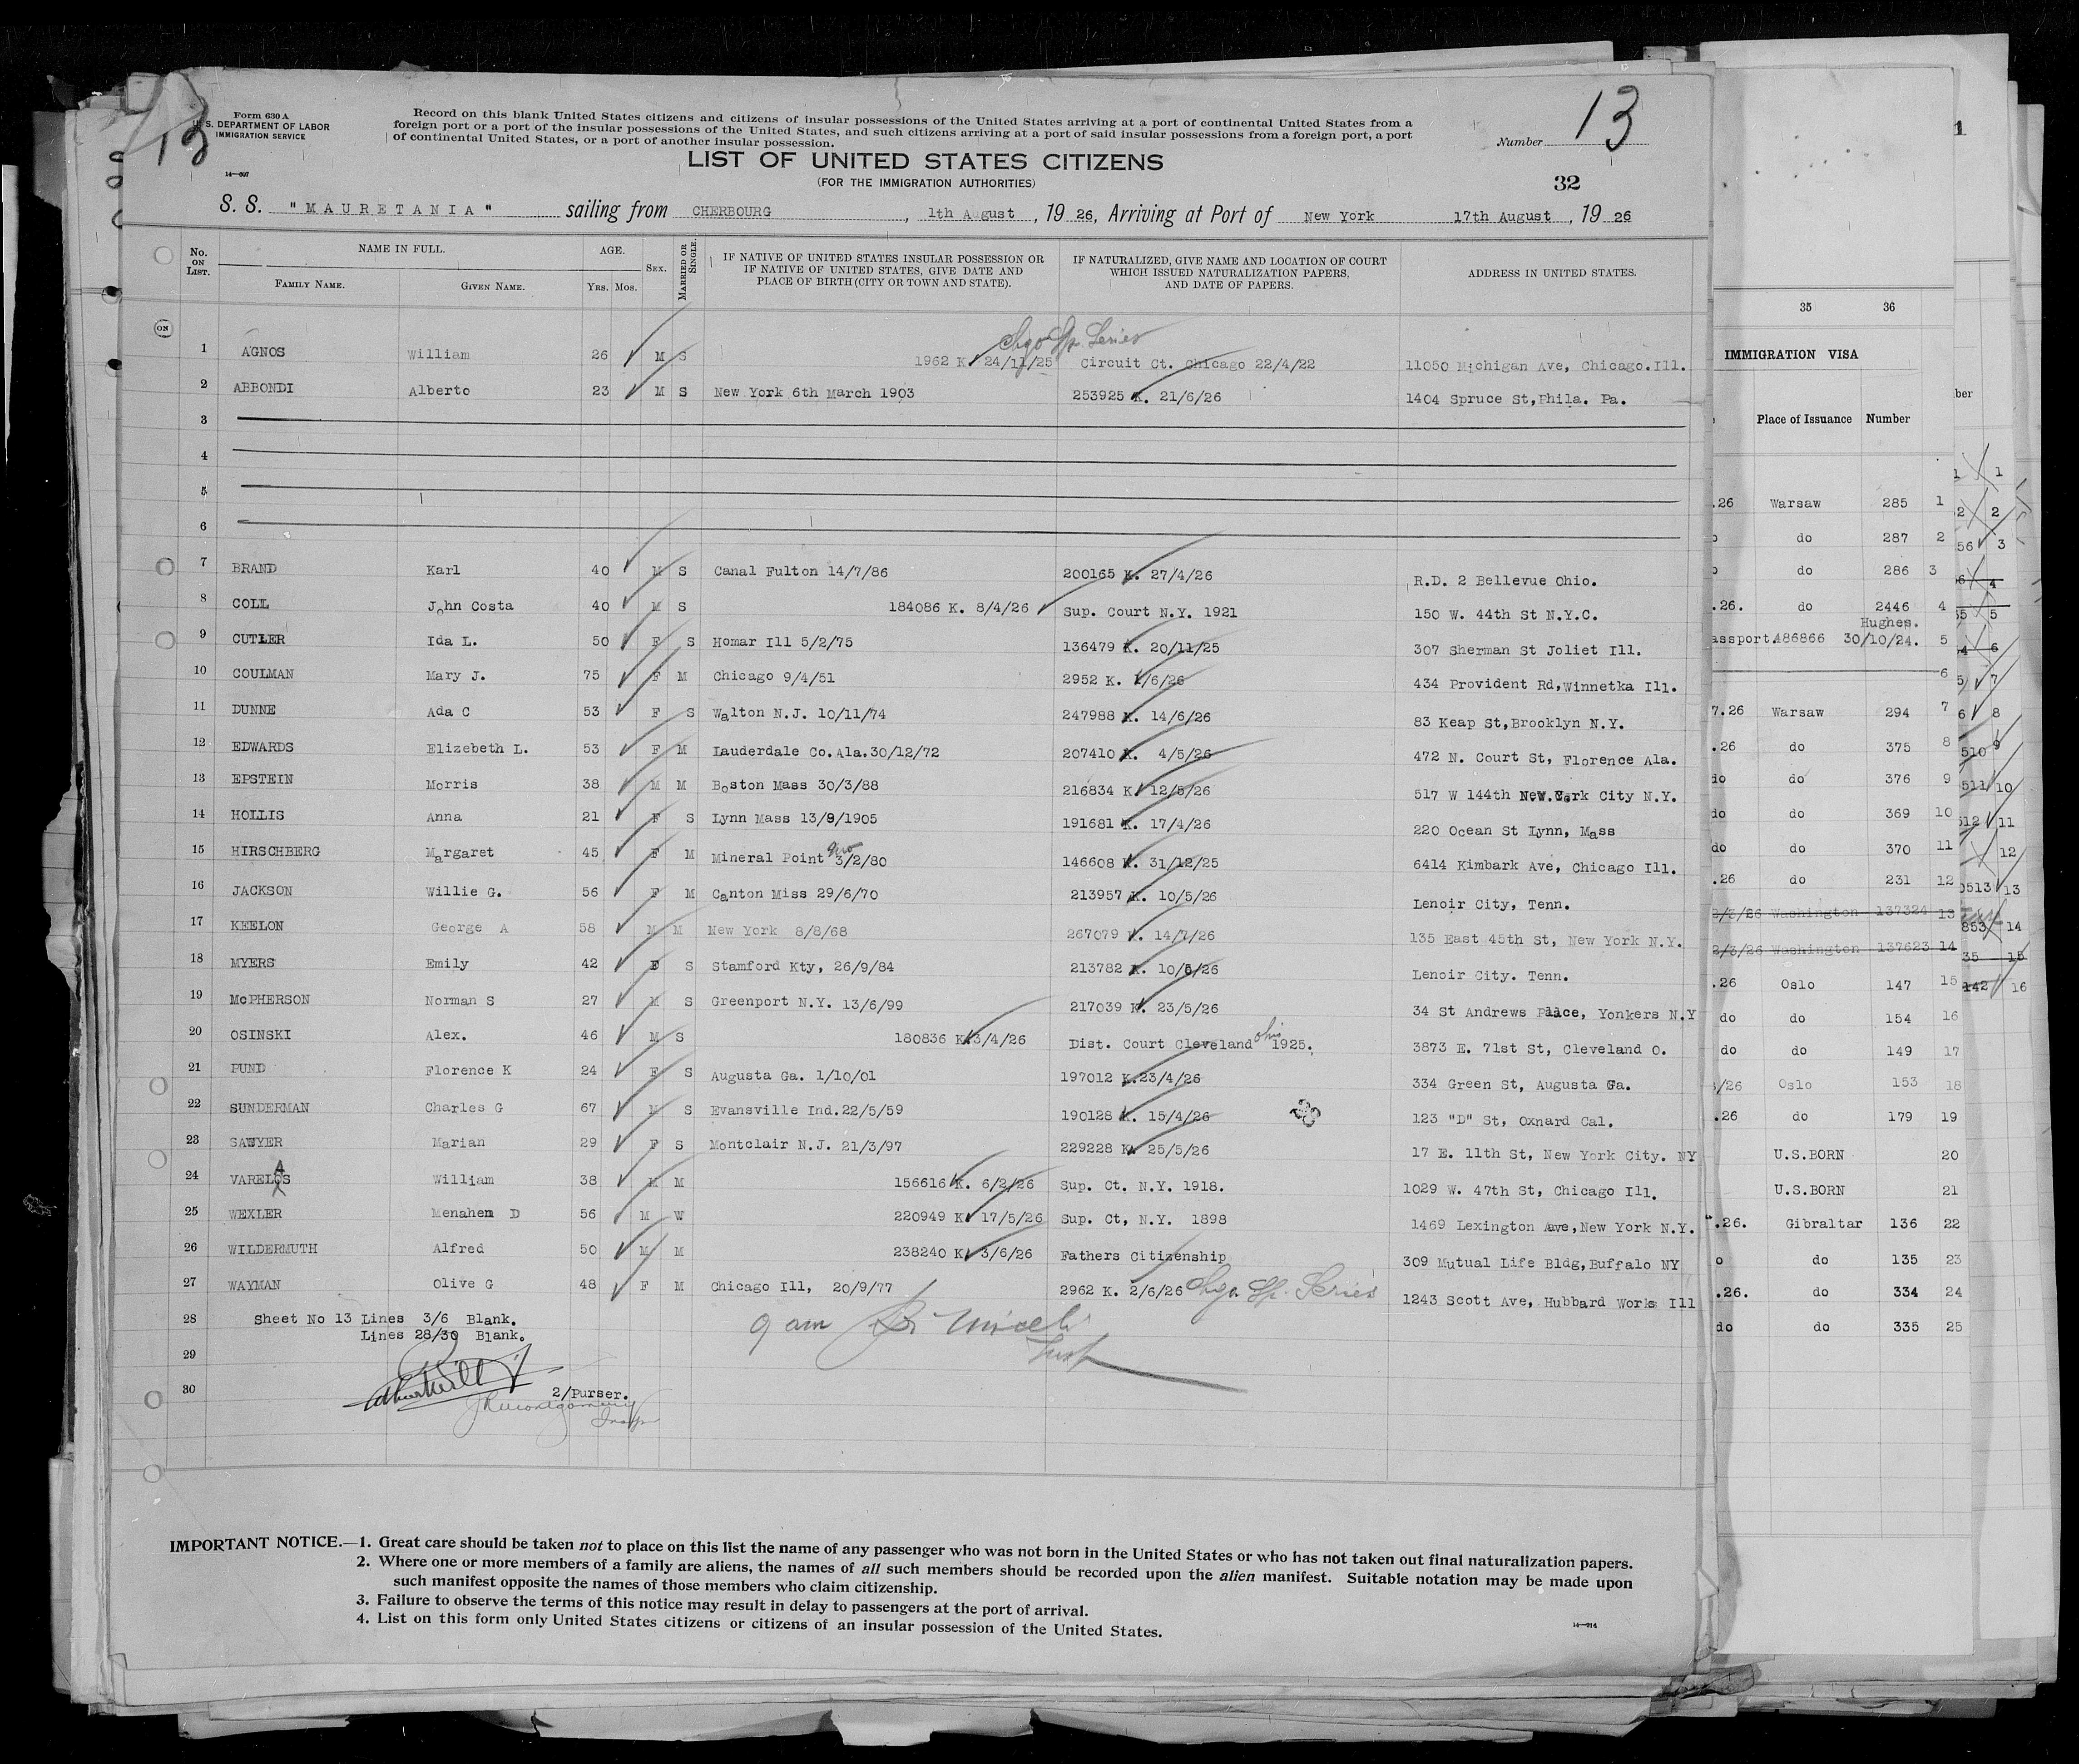 13
Form 630 A
U. S. DEPARTMENT OF LABOR
IMMIGRATION SERVICE
14—607
Record on this blank United States citizens and citizens of insular possessions of the United States arriving at a port of continental United States from a
foreign port or a port of the insular possessions of the United States, and such citizens arriving at a port of said insular possessions from a foreign port, a port
of continental United States, or a port of another insular possession.
Number 13
LIST OF UNITED STATES CITIZENS
(FOR THE IMMIGRATION AUTHORITIES)
32
S. S. "MAURETANIA" sailing from CHERBOURG, 1th August, 19 26, Arriving at Port of New York 17th August, 19 26
No. ON LIST. NAME IN FULL. FAMILY NAME. GIVEN NAME. AGE. YRS. MOS. SEX. MARRIED OR SINGLE. IF NATIVE OF UNITED STATES INSULAR POSSESSION OR IF NATIVE OF UNITED STATES, GIVE DATE AND PLACE OF BIRTH (CITY OR TOWN AND STATE). IF NATURALIZED, GIVE NAME AND LOCATION OF COURT WHICH ISSUED NATURALIZATION PAPERS, AND DATE OF PAPERS. ADDRESS IN UNITED STATES.
ON
Chgo Sp. Series
1 AGNOS William 26 M S 1962 K 24/11/25 Circuit Ct. Chicago 22/4/22 11050 Michigan Ave, Chicago.Ill.
2 ABBONDI Alberto 23 M S New York 6th March 1903 253925 K. 21/6/26 1404 Spruce St,Phila. Pa.
3
4
5
6
7 BRAND Karl 40 M S Canal Fulton 14/7/86 200165 K. 27/4/26 R.D. 2 Bellevue Ohio.
8 COLL John Costa 40 M S 184086 K. 8/4/26 Sup. Court N.Y. 1921 150 W. 44th St N.Y.C.
9 CUTLER Ida L. 50 F S Homar Ill 5/2/75 136479 K. 20/11/25 307 Sherman St Joliet Ill.
10 COULMAN Mary J. 75 F M Chicago 9/4/51 2952 K. 1/6/26 434 Provident Rd,Winnetka Ill.
11 DUNNE Ada C 53 F S Walton N.J. 10/11/74 247988 K. 14/6/26 83 Keap St,Brooklyn N.Y.
12 EDWARDS Elizebeth L. 53 F M Lauderdale Co.Ala.30/12/72 207410 K. 4/5/26 472 N. Court St, Florence Ala.
13 EPSTEIN Morris 38 M M Boston Mass 30/3/88 216834 K 12/5/26 517 W 144th New York City N.Y.
14 HOLLIS Anna 21 F S Lynn Mass 13/9/1905 191681 K. 17/4/26 220 Ocean St Lynn, Mass
15 HIRSCHBERG Margaret 45 F M Mineral Point 3/2/80 146608 K. 31/12/25 6414 Kimbark Ave, Chicago Ill.
16 JACKSON Willie G. 56 F M Canton Miss 29/6/70 213957 K. 10/5/26 Lenoir City, Tenn.
17 KEELON George A 58 M M New York 8/8/68 267079 K. 14/7/26 135 East 45th St, New York N.Y.
18 MYERS Emily 42 F S Stamford Kty, 26/9/84 213782 K. 10/5/26 Lenoir City. Tenn.
19 McPHERSON Norman S 27 M S Greenport N.Y. 13/6/99 217039 K. 23/5/26 34 St Andrews Place, Yonkers N.Y
20 OSINSKI Alex. 46 M S 180836 K 3/4/26 Dist. Court Cleveland Ohio 1925. 3873 E. 71st St, Cleveland O.
21 PUND Florence K 24 F S Augusta Ga. 1/10/01 197012 K.23/4/26 334 Green St, Augusta Ga.
22 SUNDERMAN Charles G 67 M S Evansville Ind.22/5/59 190128 K. 15/4/26 123 "D" St, Oxnard Cal.
23 SAWYER Marian 29 F S Montclair N.J. 21/3/97 229228 K. 25/5/26 17 E. 11th St, New York City. NY
A
24 VARELOS William 38 M M 156616 K. 6/2/26 Sup. Ct. N.Y. 1918. 1029 W. 47th St, Chicago Ill.
25 WEXLER Menahem D 56 M W 220949 K 17/5/26 Sup. Ct, N.Y. 1898 1469 Lexington Ave,New York N.Y.
26 WILDERMUTH Alfred 50 M M 238240 K 3/6/26 Fathers Citizenship 309 Mutual Life Bldg,Buffalo NY
27 WAYMAN Olive G 48 F M Chicago Ill, 20/9/77 2962 K. 2/6/26 Chgo. Sp. Series 1243 Scott Ave, Hubbard Works Ill
28 Sheet No 13 Lines 3/6 Blank.
Lines 28/30 Blank.
9 am
29
30 2/Purser.
JR Montgomery
Insp
IMPORTANT NOTICE.—1. Great care should be taken not to place on this list the name of any passenger who was not born in the United States or who has not taken out final naturalization papers.
2. Where one or more members of a family are aliens, the names of all such members should be recorded upon the alien manifest. Suitable notation may be made upon
such manifest opposite the names of those members who claim citizenship.
3. Failure to observe the terms of this notice may result in delay to passengers at the port of arrival.
4. List on this form only United States citizens or citizens of an insular possession of the United States.
14—914
35 36
IMMIGRATION VISA
Place of Issuance Number
.26 Warsaw 285 1
do 287 2
do 286 3
.26. do 2446 4
Hughes.
assport.486866 30/10/24. 5
6
7.26 Warsaw 294 7
.26 do 375 8
do do 376 9
do do 369 10
do do 370 11
.26 do 231 12
2/3/26 Washington 137324 13
2/3/26 Washington 137623 14
.26 Oslo 147 15
do do 154 16
do do 149 17
/26 Oslo 153 18
.26 do 179 19
U.S.BORN 20
U.S.BORN 21
.26. Gibraltar 136 22
o do 135 23
.26. do 334 24
do do 335 25
1
ber
1
2
56 3
4
5
6
7
8
510 9
511 10
512 11
12
0513 13
853 14
35 15
142 16